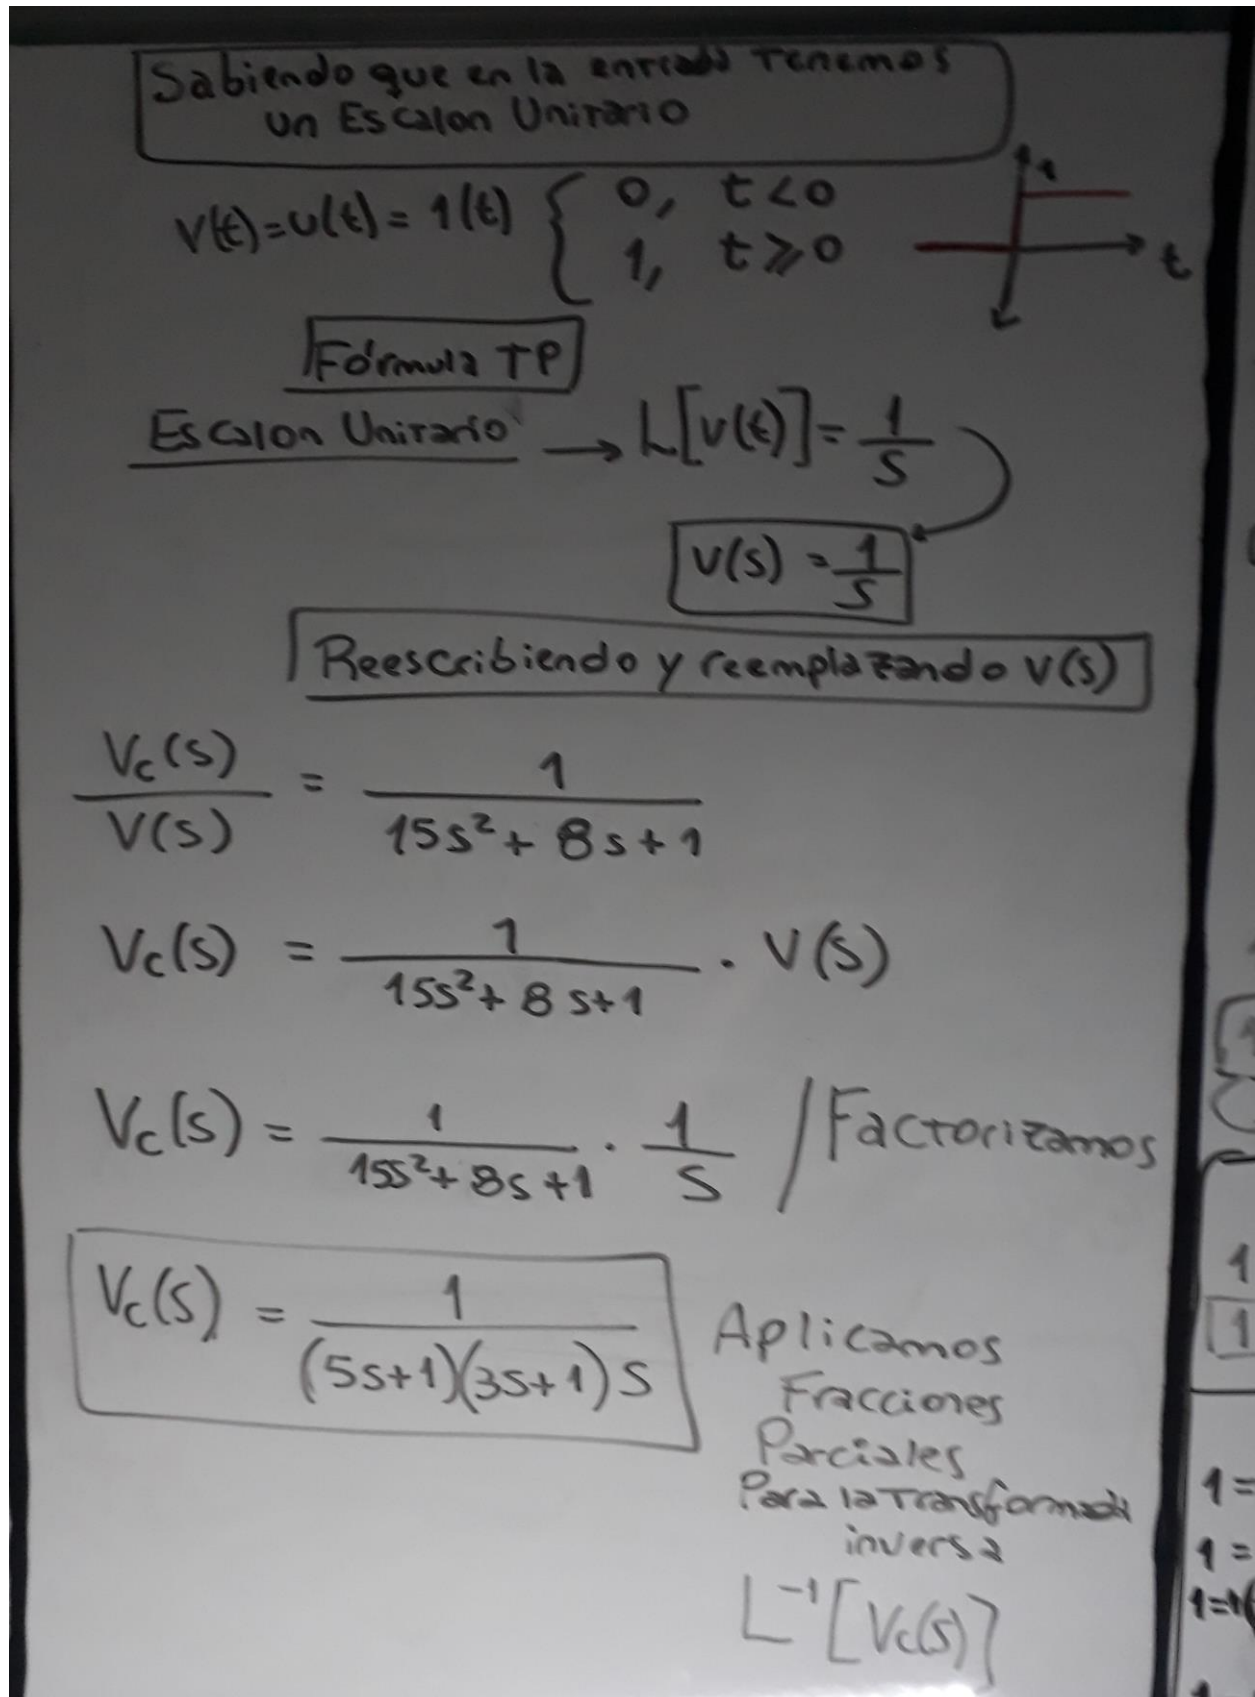 Sabiendo que en la entrada Tenemos
un Escalon Unitario
V(t)=u(t)= 1(t) { 0, t<0
1, t⩾0
1
t
Fórmula TP
Escalon Unitario → L[v(t)]= 1/s
V(s) = 1/s
Reescribiendo y reemplazando V(s)
Vc(s)/V(s) = 1/(15s²+ 8s+1)
Vc(s) = 1/(15s²+ 8s+1) · V(s)
Vc(s) = 1/(15s²+ 8s+1) · 1/s / Factorizamos
Vc(s) = 1/((5s+1)(3s+1)s)
Aplicamos
Fracciones
Parciales
Para la Transformada
inversa
L⁻¹[Vc(s)]
1
1
1=
1=